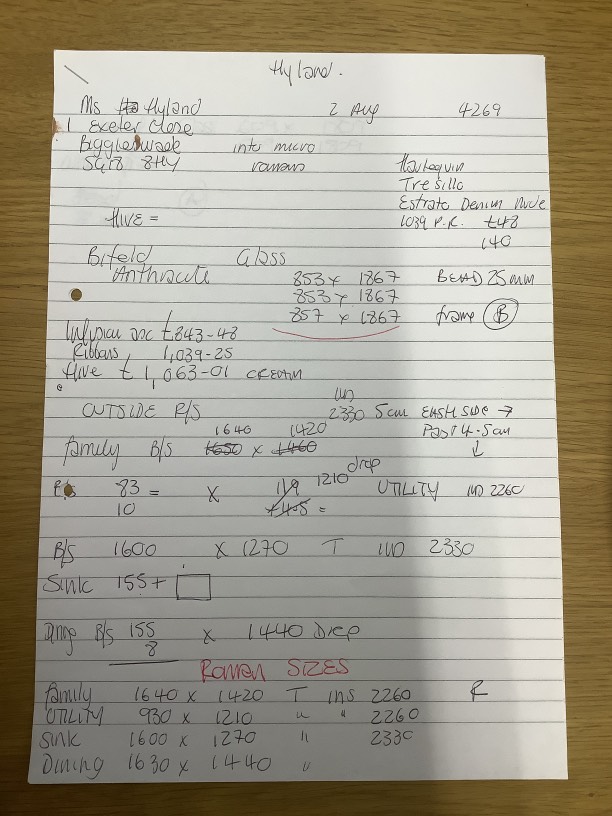 Hyland.
Ms Hyland 2 Aug 4269
1 Exeter Close
Biggleswade into micro
SG18 8HY romans Harlequin
Tresillo
Estrato Denim Nude
Hive = 1039 P.R. £48
140
Bifold Glass
Anthracite 853 x 1867 BEAD 25mm
853 x 1867
857 x 1867 frame B
Infusion asc £843-48
Ribbons 1,039-25
Hive £1,063-01 CREAM
OUTSIDE R/S 2330 5cm EACH SIDE →
1640 1420 Past 4.5cm
family B/S 1650 x 1460 ↓
drop
83 = x 119 1210 UTILITY IND 2260
10 =
B/S 1600 x 1270 T IND 2330
Sink 155 +
Dining B/S 155 x 1440 Drop
8
Roman SIZES
family 1640 x 1420 T ins 2260 F
UTILITY 930 x 1210 " " 2260
Sink 1600 x 1270 " 2330
Dining 1630 x 1440 "